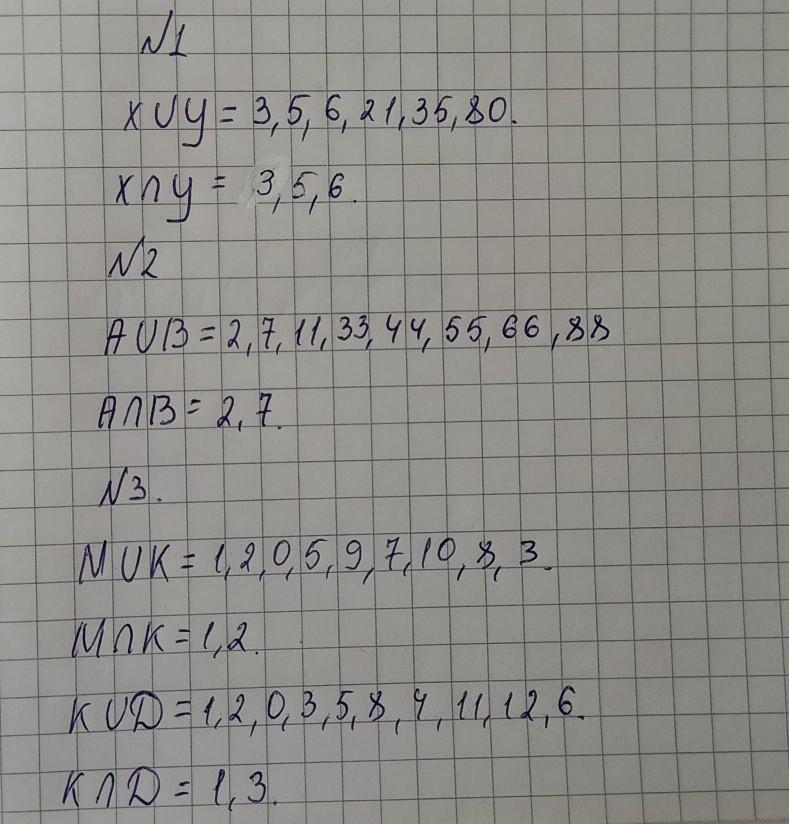 N1
X∪Y = 3, 5, 6, 21, 35, 80.
X∩Y = 3, 5, 6.
N2
A∪B = 2, 7, 11, 33, 44, 55, 66, 88
A∩B = 2, 7.
N3.
M∪K = 1, 2, 0, 5, 9, 7, 10, 8, 3.
M∩K = 1, 2.
K∪D = 1, 2, 0, 3, 5, 8, 4, 11, 12, 6.
K∩D = 1, 3.